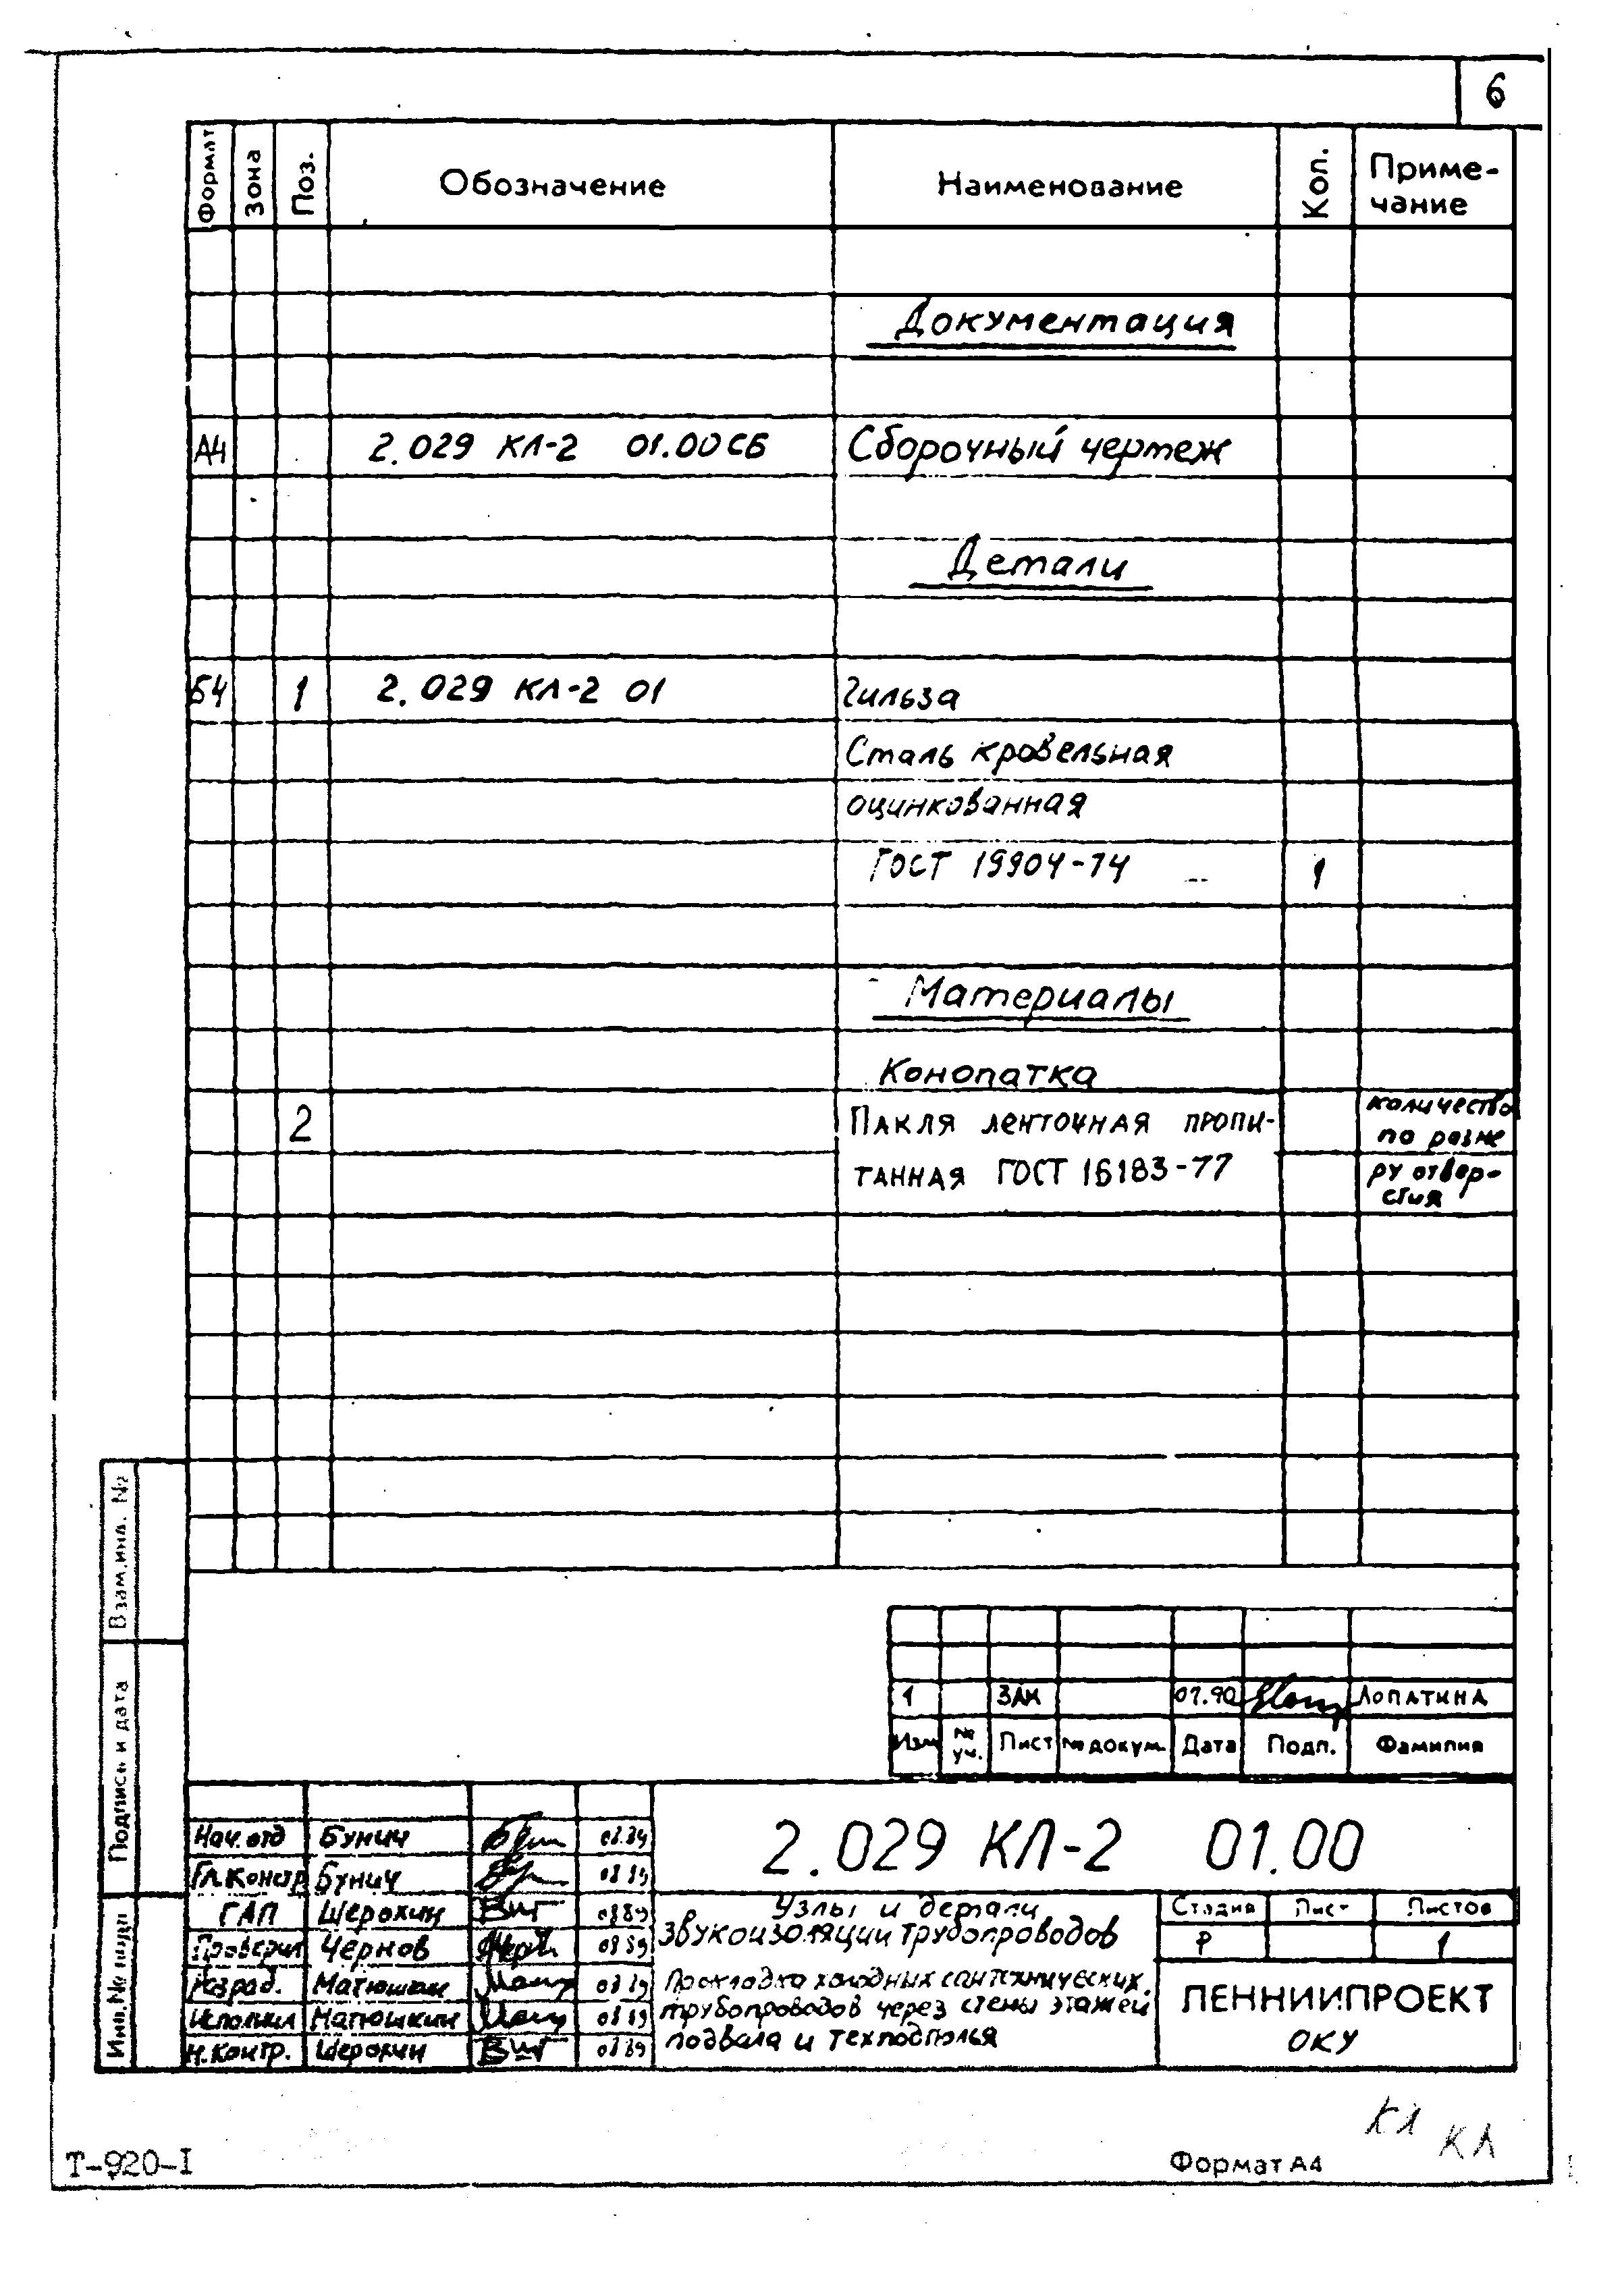 6
Формат Зона Поз. Обозначение Наименование Кол. Приме-
чание
Документация
А4 2.029 КЛ-2 01.00СБ Сборочный чертеж
Детали
Б4 1 2.029 КЛ-2 01 Гильза
Сталь кровельная
оцинкованная
ГОСТ 19904-74 1
Материалы
Конопатка
2 Пакля ленточная пропи- количество
по разме
танная ГОСТ 16183-77 ру отвер-
стия
Взам.инв. №
Подпись и дата
Инв.№ подл
1 ЗАМ 07.90 Лопатина
Изм № уч. Лист № докум. Дата Подп. Фамилия
Нач. отд Бунич 08.89
Гл.констр Бунич 08 89
ГАП Шерохин 08 89
Проверил Чернов 08 89
Разраб. Матюшкин 08 89
Исполнил Матюшкин 08 89
Н.контр. Шерохин 08 89
2.029 КЛ-2 01.00
Узлы и детали
звукоизоляции трубопроводов
Прокладка холодных сантехнических
трубопроводов через стены этажей
подвала и техподполья
Стадия Лист Листов
Р 1
ЛЕННИИПРОЕКТ
ОКУ
КЛ КЛ
Т-920-I Формат А4